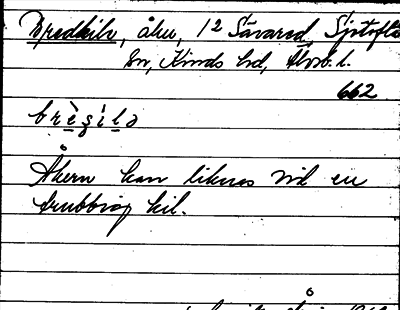 Bredkila, åker, 12 Sävared, Sjötofta
sn, Kinds hd, Älvsb. l.
662
brèsìla
Åkern kan liknas vid en
trubbig kil.